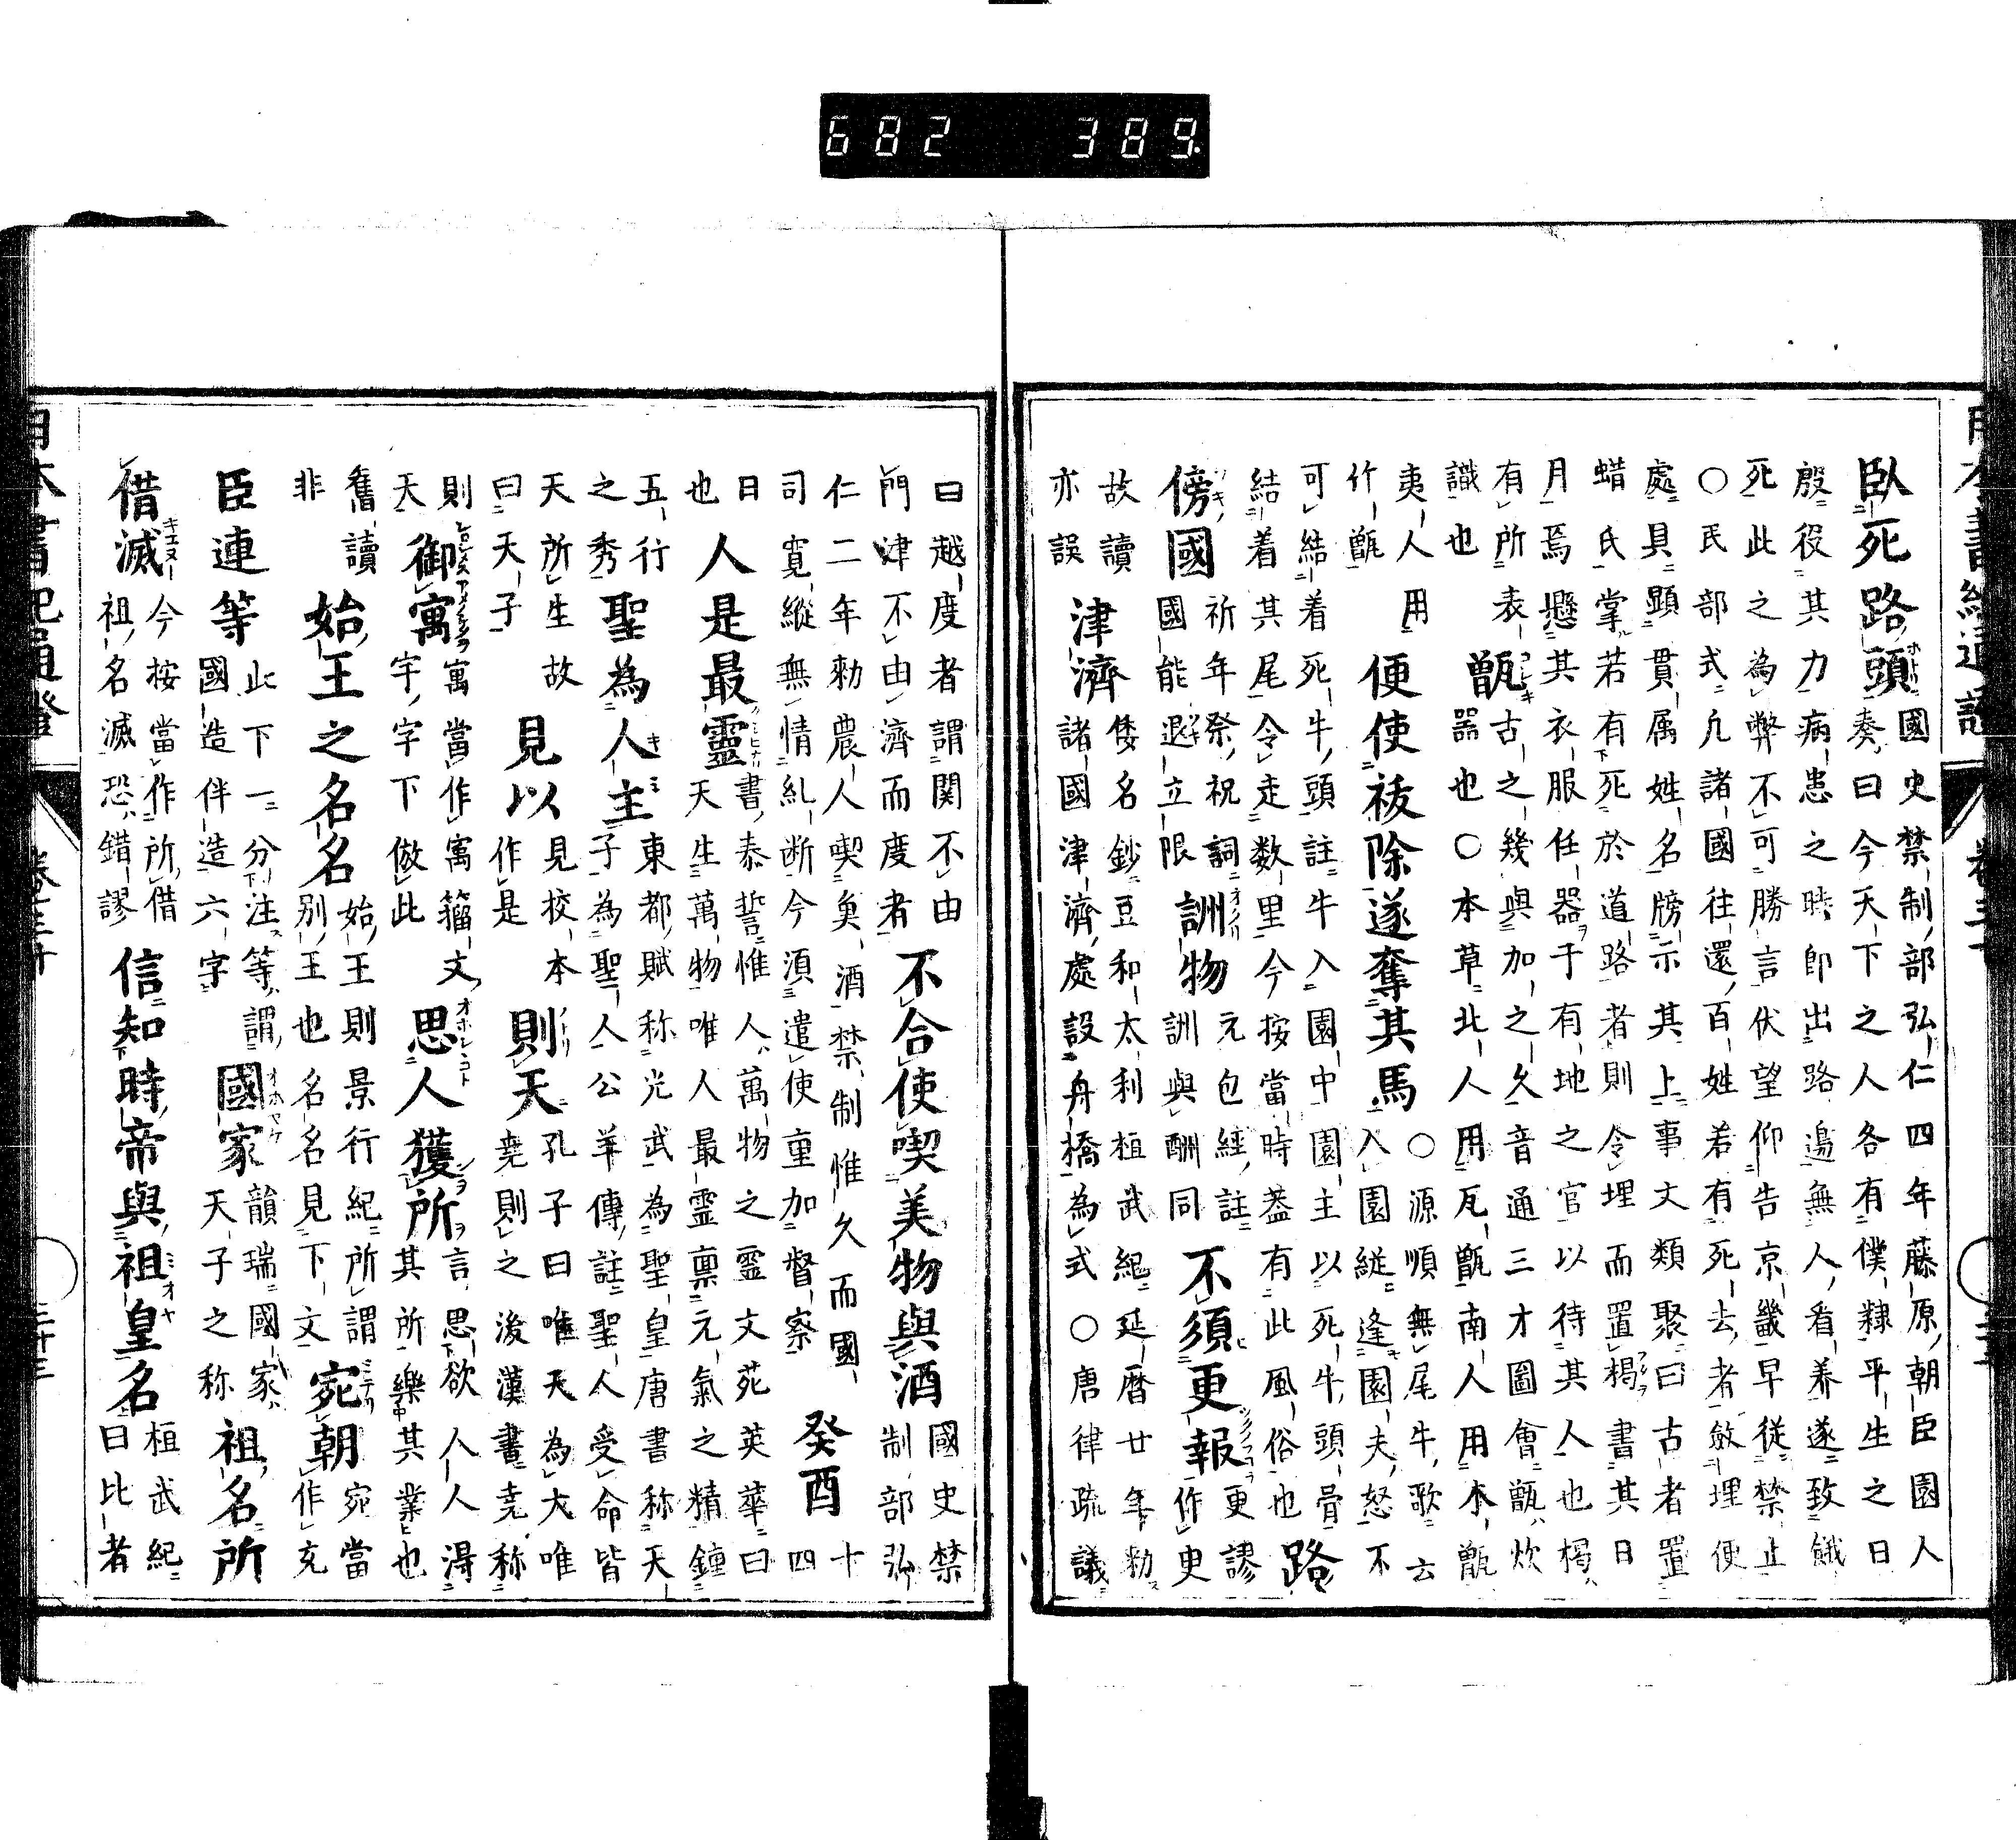 臥死路頭
國史禁制部弘仁四年藤原朝臣園人
奏曰今天下之人各有僕隸平生之日
殷役其力病患之時即出路邊無人看養遂致餓
死此之為弊不可勝言伏望仰告京畿早従禁止
〇民部式凢諸國往還百姓若有死去者斂埋便
處具顕貫属姓名牓示其上事文類聚曰古者置
蜡氏掌若有死於道路者則令埋而置楬書其日
月焉懸其衣服任器于有地之官以待其人也楬
有所表
識也
甑
古之幾與加之久音通三才圖會甑炊
器也〇本草北人用瓦甑南人用木甑
夷人用
竹甑
便使祓除遂奪其馬
〇源順無尾牛歌云
入園縦逢園夫怒不
可結着死牛頭註牛入園中園主以死牛頭骨
結着其尾令走数里今按當時盖有此風俗也
路
傍國
祈年祭祝詞
國能退立限
詶物
元包經註
詶與酬同
不須更報
更謬
作吏
故讀
亦誤
津濟
倭名鈔豆和太利桓武紀延暦廿年勅
諸國津濟處設舟橋為式〇唐律疏議
曰越度者謂関不由
門津不由濟而度者
不合使喫美物與酒
國史禁
制部弘
仁二年勅農人喫魚酒禁制惟久而國
司寛縱無情糺断今須遣使重加督察
癸酉
十
四
日
也
人是最靈
書泰誓惟人萬物之霊文苑英華曰
天生萬物唯人最霊禀元氣之精鍾
五行
之秀
聖為人主
東都賦称光武為聖皇唐書称天
子為聖人公羊傳註聖人受命皆
天所生故
曰天子
見以
見校本
作是
則天
孔子曰唯天為大唯
堯則之後漢書堯称
則
天
御寓
寓當作寓籀文
字字下倣此
思人獲所
言思欲人人得
其所樂其業也
舊讀
非
始王之名名
始王則景行紀所謂
別王也名名見下文
宛朝
宛當
作充
臣連等
此下一分注等謂
國造伴造六字
國家
韻瑞國家
天子之称
祖名所
借滅
今按當作所借
祖名滅恐錯謬
信知時帝與祖皇名
桓武紀
曰比者
日本書紀通證
卷三十
三十三
682 389